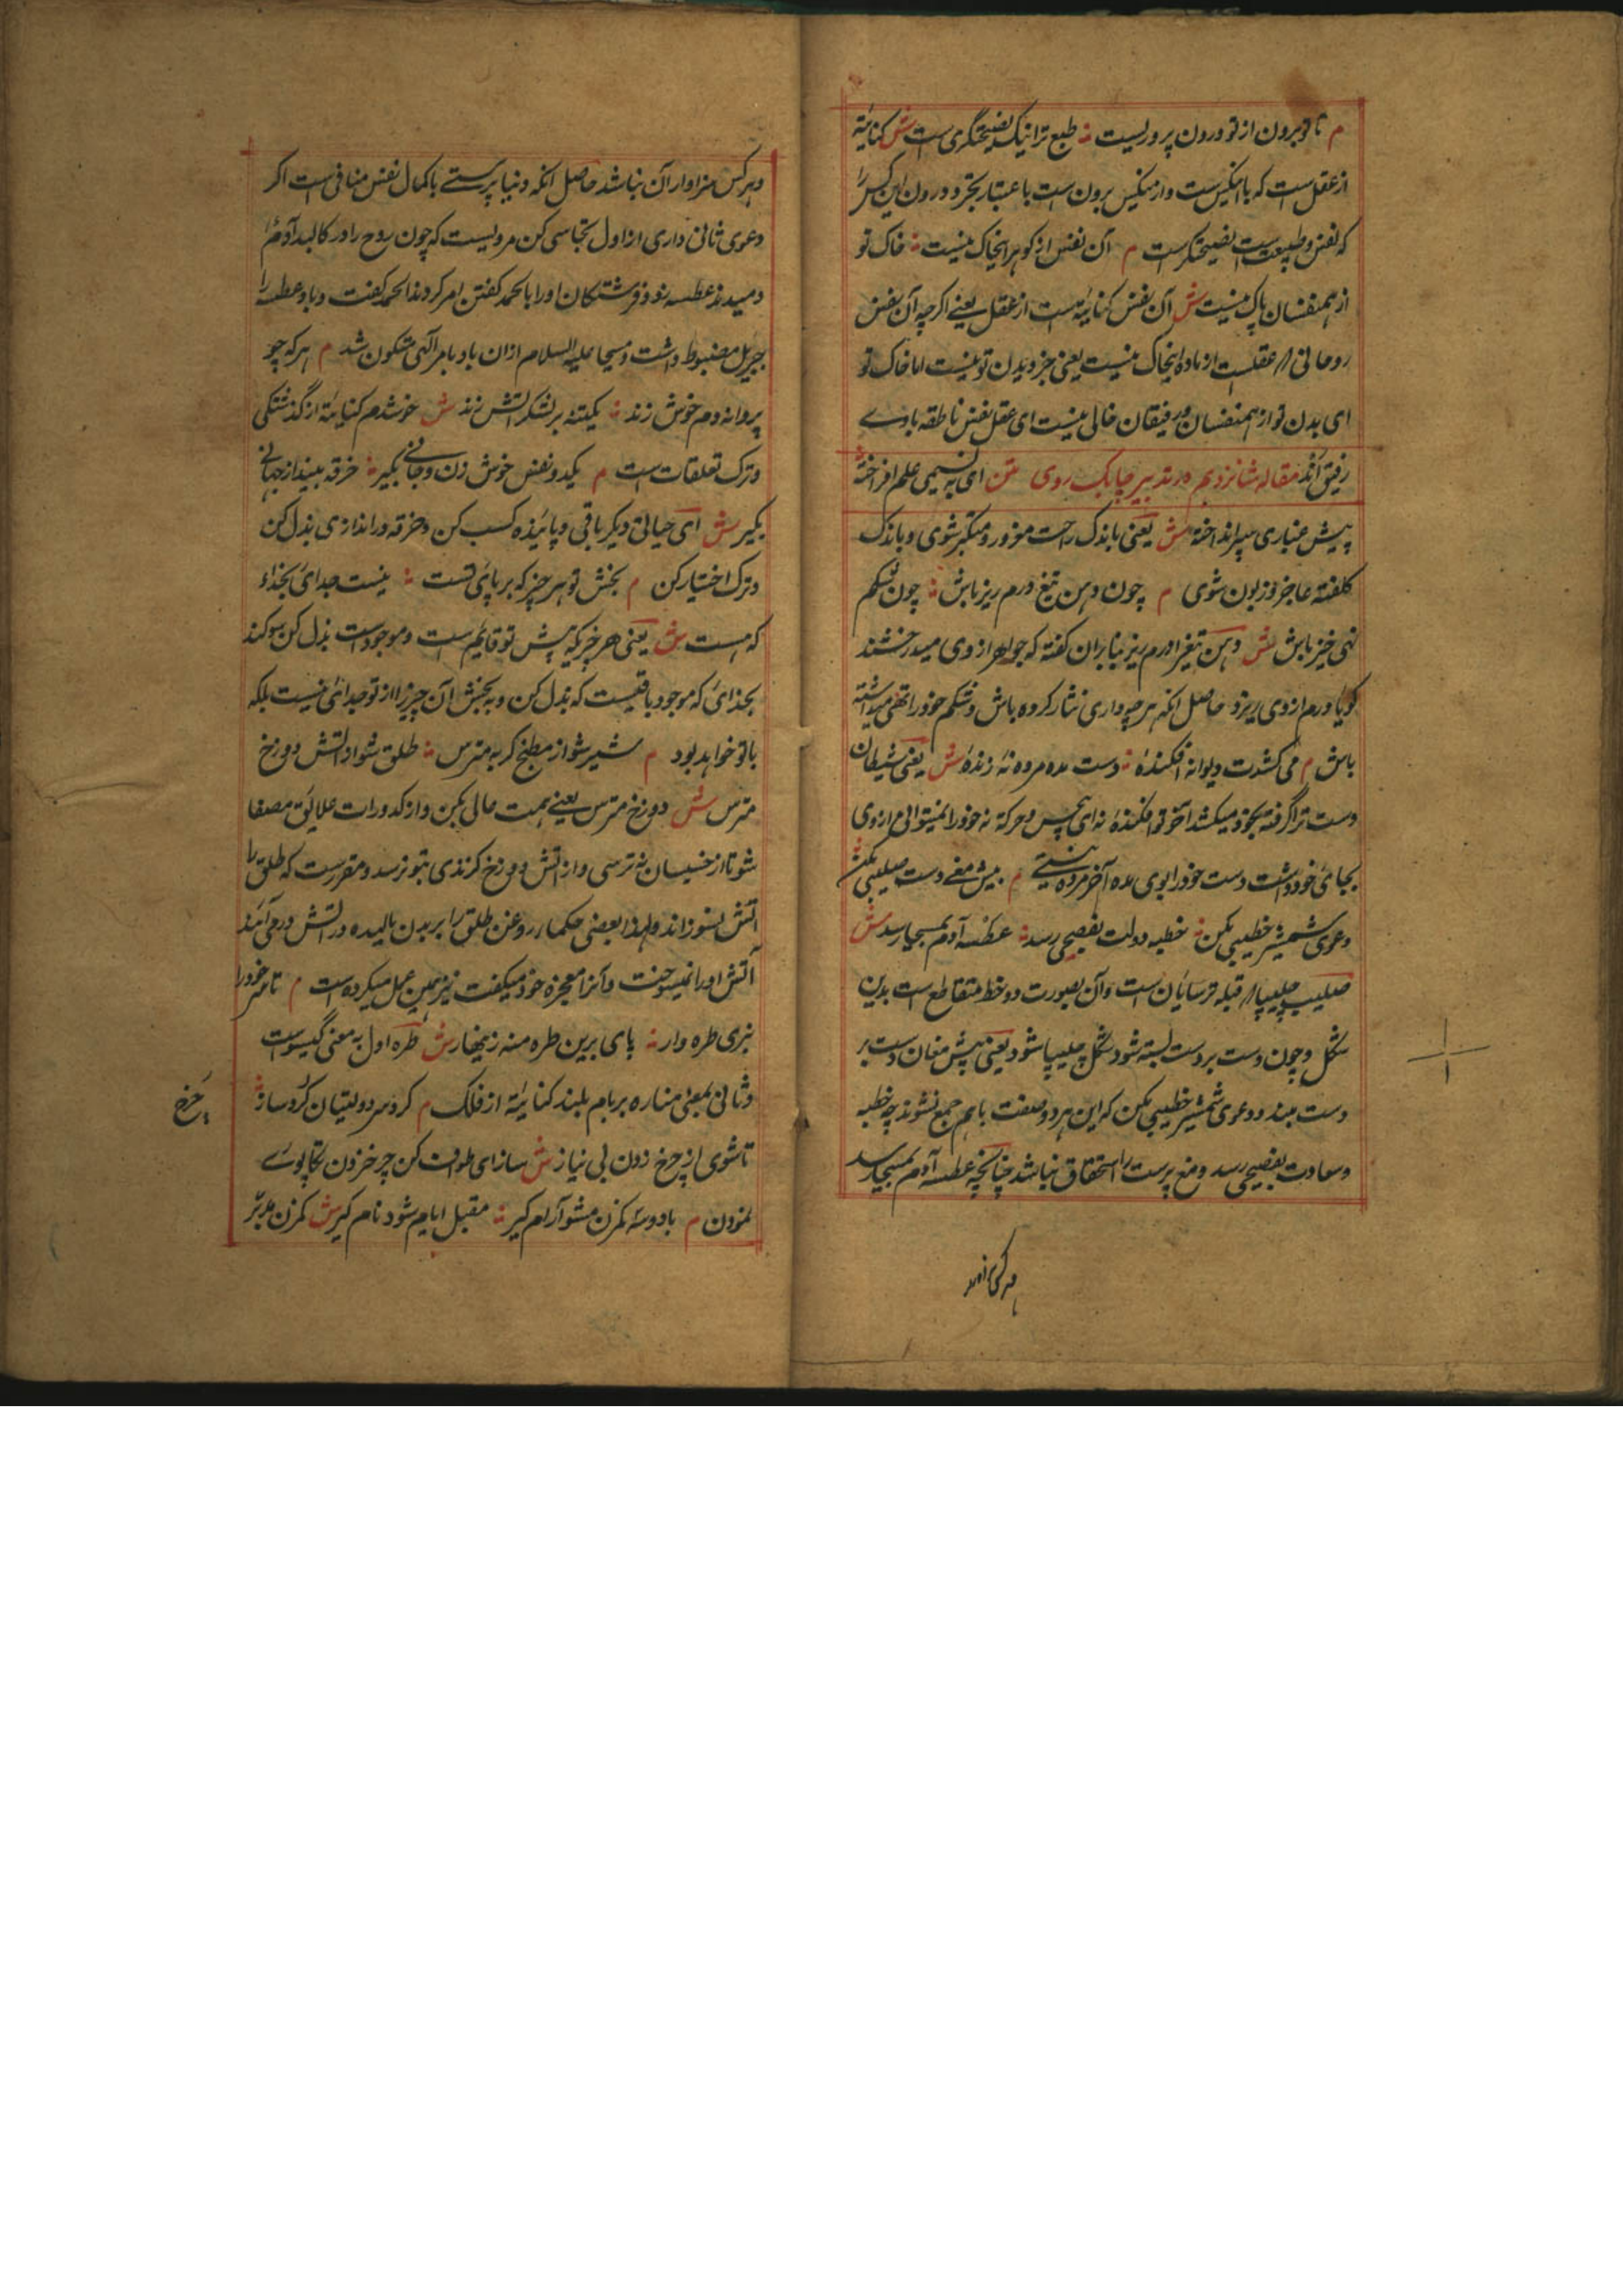 م تا تو برون از تو درون پروریست ؞ طبع ترا نیک نصیحتگری است ش کنایة
از عقل است که با اینکس است و از اینکس برون است باعتبار تجرد و درون این کس را
که نفس و طبیعت است نصیحتگر است م آن نفس از گوهر اینخاک نیست ؞ خاک تو
از همنفسان پاک نیست ش آن نفس کنایة است از عقل یعنے اگرچه آن نفس
روحانی که عقلست از ماده اینخاک نیست یعنی جزو بدن تو نیست اما خاک تو
ای بدن تو از همنفسان و رفیقان خالی نیست ای عقل نفس ناطقه با وے
رفیق اند مقاله شانزدهم در تدبیر چابک روی متن ای به نسیمی علم افراخته
پیش غباری سپر انداخته ش یعنی باندک راحت مغرور و متکبر شوی و باندک
کلفته عاجز و زبون شوی م چون دهن تیغ درم ریز باش ؞ چون شکم
تهی خیز باش ش دهن تیغ را درم ریز بنابران گفته که جواهر از وی میدرخشند
گویا درم از وی ریزد حاصل انکه هرچه داری نثار کرده باش و شکم خود را تهی میداشته
باش م می کشدت دیو نه افکندهٔ ؞ دست مده مرده نهٔ زندهٔ ش یعنی شیطان
دست ترا گرفته بخود میکشد آخر تو افکندهٔ نه ای بیحس و حرکة نه خود را نمیتوانی از وی
بجای خود داشت دست خود را بوی مده آخر مرده نیستے م پیش مغے دست صلیبی مکن ؞
دعوی شمشیر خطیبی مکن ؞ خطبه دولت بفصیحی رسد ؞ عطسه آدم بمسیحا رسد ش
صلیب چلیپا که قبله ترسایان است و آن بصورت دو خط متقاطع است بدین
شکل و چون دست بر دست بسته شود شکل چلیپا شود یعنی پیش مغان دست بر
دست مبند و دعوی شمشیر خطیبی مکن که این هر دو صفت باهم جمع نشوند چه خطبه
و سعادت بفصیحی رسد و مغ پرست را استحقاق نباشد چنانچه عطسه آدم بمسیحا رسد
و هر کس سزاوار آن نباشد حاصل انکه دنیا پرستے با کمال نفس منافی است اگر
دعوی ثانی داری از اول تحاشی کن مرویست که چون روح را در کالبد آدم
دمیدند عطسه زد و فرشتگان او را بالحمد گفتن امر کردند الحمد گفت و باد عطسه را
جبریل مضبوط داشت و مسیحا علیه السلام ازان باد بامر آلهی متکون شد م هر که چو
پروانه دم خوش زند ؞ یکتنه بر لشکر آتش زند ش خوشدم کنایة از گذشتگی
و ترک تعلقات است م یکدو نفس خوش زن و جانے بگیر ؞ خرقه بینداز جهانے
بگیر ش ای حیاتی دیگر باقی و پاینده کسب کن و خرقه در اندازی بذل کن
و ترک اختیار کن م بخش تو هر چیز که بر پای تست ؞ نیست جدا ی بخدائے
که هست ش یعنی هر چیز که پیش تو قایم است و موجود است بذل کن سوگند
بخدائی که موجود باقیست که بذل کن و به بخش آن چیز را از تو جدائی نیست بلکه
با تو خواهد بود م شیر شو از مطبخ گربه مترس ؞ طلق شو از آتش دوزخ
مترس ش دوزخ مترس یعنے همت عالی بکن و از کدورات علایق مصفا
شو تا از خسیسان نه ترسی و از آتش دوزخ گزندی بتو نرسد و مقرر است که طلق را
آتش نسوزاند و لهذا بعضی حکما روغن طلق را بر بدن مالیده در آتش در می آیند
آتش او را نمیسوخت و آنرا معجزه خود میگفت نیز همین عمل میکرده است م تا سر خود را
نبری طره وار ؞ پای برین طره منه زینهار ش طره اول به معنی گیسوست
و ثانی بمعنی مناره بر بام بلند کنایة از فلک م گرد سر دولتیان گرد ساز ؞
تا شوی از چرخ زدن بی نیاز ش ساز ای طوف کن چرخ زدن تکاپوے
نمودن م با دو سه کم زن مشو آرام گیر ؞ مقبل ایام شود نام گیر ش کم زن مدبر
چرخ